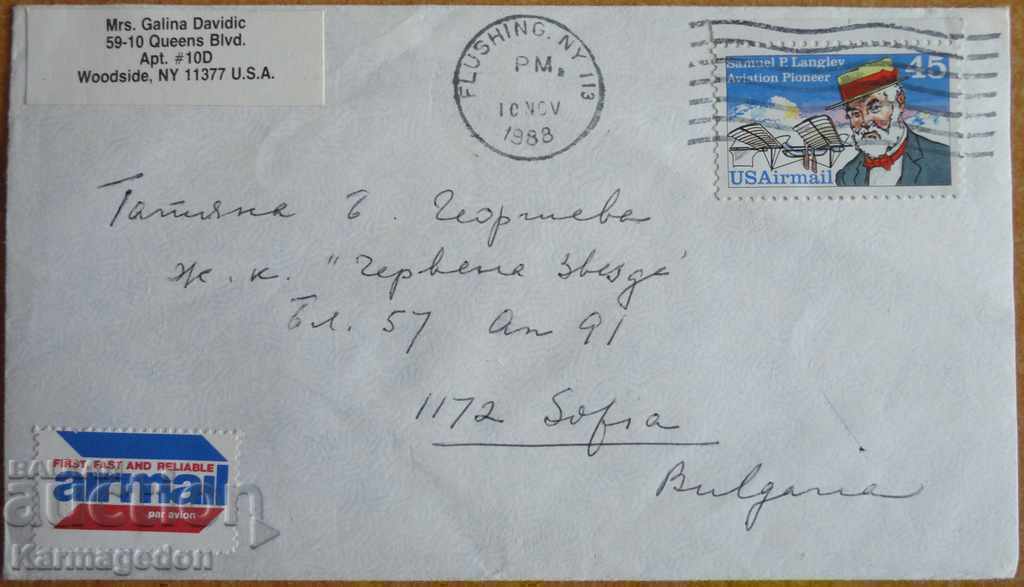 Mrs. Galina Davidic
59-10 Queens Blvd.
Apt. #10D
Woodside, NY 11377 U.S.A.
FLUSHING, NY 113
PM
10 NOV
1988
Samuel P. Langley
Aviation Pioneer
45
USAirmail
Татяна Б. Георгиева
ж.к. "Червена звезда"
Бл. 57 Ап 91
1172 Sofia
Bulgaria
FIRST, FAST AND RELIABLE
airmail
par avion
auction
Karmagedon